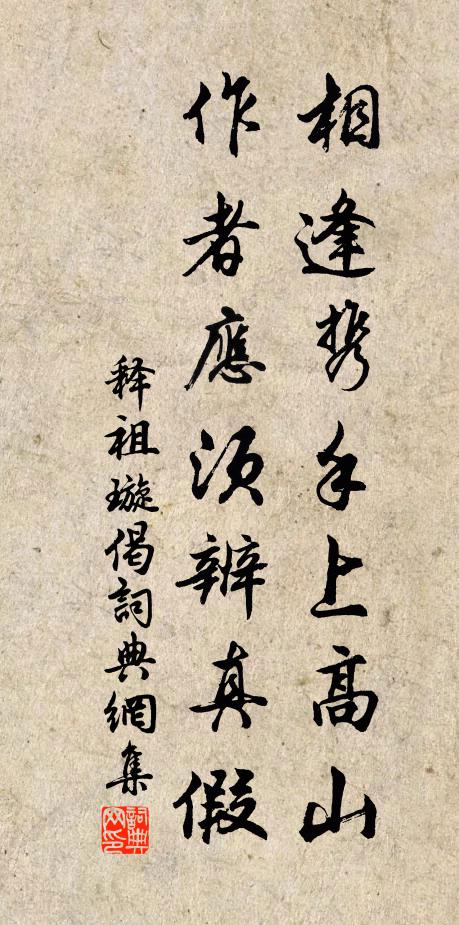 相逢携手上高山
作者應須辨真假
释祖璇偈詞典網集
詞典网印